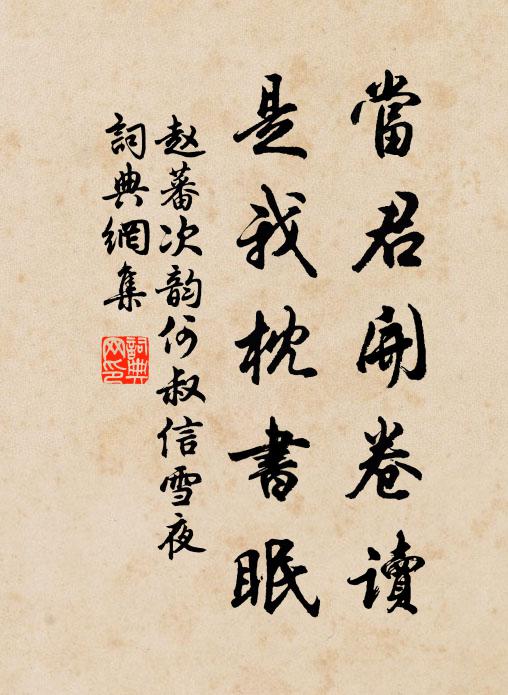 當君開卷讀
是我枕書眠
赵蕃次韵何叔信雪夜
詞典網集
詞典網印